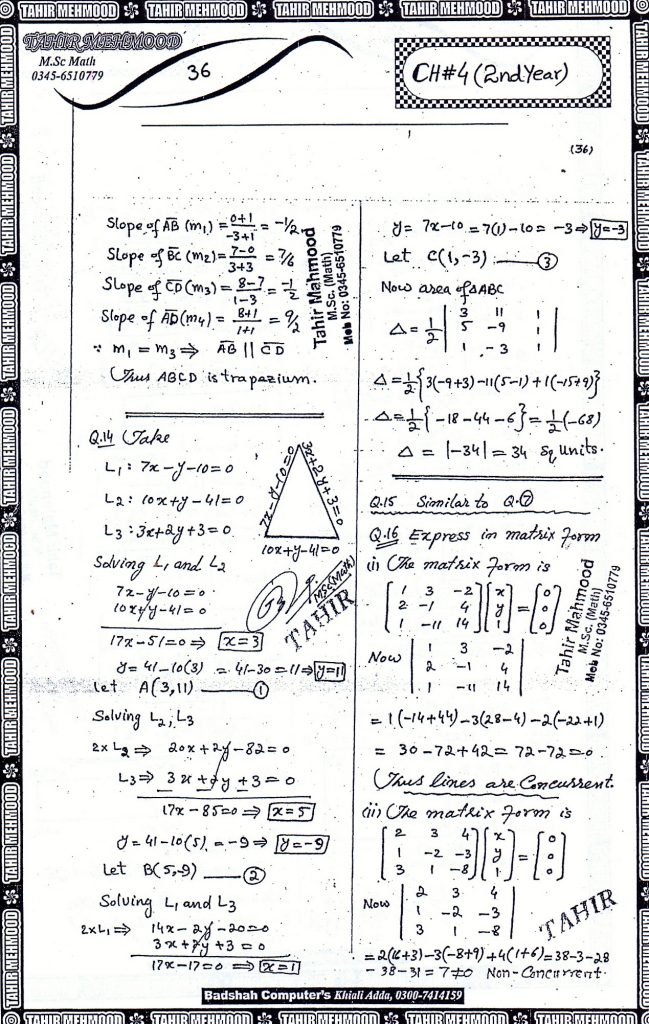 TAHIR MEHMOOD TAHIR MEHMOOD TAHIR MEHMOOD TAHIR MEHMOOD TAHIR MEHMOOD
TAHIR MEHMOOD
M.Sc Math
0345-6510779
36
CH#4 (2nd Year)
(36)
Slope of AB (m₁) = (0+1)/(-3+1) = -1/2
Slope of BC (m₂) = (7-0)/(3+3) = 7/6
Slope of CD (m₃) = (8-7)/(1-3) = -1/2
Slope of AD (m₄) = (8+1)/(1+1) = 9/2
∵ m₁ = m₃ ⇒ AB || CD
Thus ABCD is trapazium.
Tahir Mahmood
M.Sc. (Math)
Mob No: 0345-6510779
Q.14 Take
L₁: 7x-y-10=0
L₂: 10x+y-41=0
L₃: 3x+2y+3=0
7x-y-10=0
3x+2y+3=0
10x+y-41=0
Solving L₁ and L₂
7x-y-10=0
10x+y-41=0
17x-51=0 ⇒ x=3
y=41-10(3) = 41-30=11 ⇒ y=11
let A(3,11) ①
MSc(Math)
TAHIR
Solving L₂, L₃
2xL₂ ⇒ 20x+2y-82=0
L₃ ⇒ 3x+2y+3=0
17x-85=0 ⇒ x=5
y=41-10(5) = -9 ⇒ y=-9
Let B(5,-9) ②
Solving L₁ and L₃
2xL₁ ⇒ 14x-2y-20=0
3x+2y+3=0
17x-17=0 ⇒ x=1
y= 7x-10 = 7(1)-10 = -3 ⇒ y=-3
Let C(1,-3) ③
Now area of ΔABC
Δ = 1/2 | 3 11 1
5 -9 1
1 -3 1 |
Δ = 1/2 {3(-9+3)-11(5-1)+1(-15+9)}
Δ = 1/2 {-18-44-6} = 1/2 (-68)
Δ = |-34| = 34 Sq units.
Q.15 Similar to Q.⑦
Q.16 Express in matrix form
(i) The matrix form is
[1 3 -2] [x] [0]
[2 -1 4] [y] = [0]
[1 -11 14] [1] [0]
Now | 1 3 -2
2 -1 4
1 -11 14 |
Tahir Mahmood
M.Sc. (Math)
Mob No: 0345-6510779
= 1(-14+44)-3(28-4)-2(-22+1)
= 30-72+42 = 72-72=0
Thus lines are Concurrent.
(ii) The matrix form is
[2 3 4] [x] [0]
[1 -2 -3] [y] = [0]
[3 1 -8] [1] [0]
Now | 2 3 4
1 -2 -3
3 1 -8 |
TAHIR
=2(16+3)-3(-8+9)+4(1+6)=38-3-28
-38-31=7≠0 Non-Concurrent.
Badshah Computer's Khiali Adda, 0300-7414159
TAHIR MEHMOOD TAHIR MEHMOOD TAHIR MEHMOOD TAHIR MEHMOOD TAHIR MEHMOOD